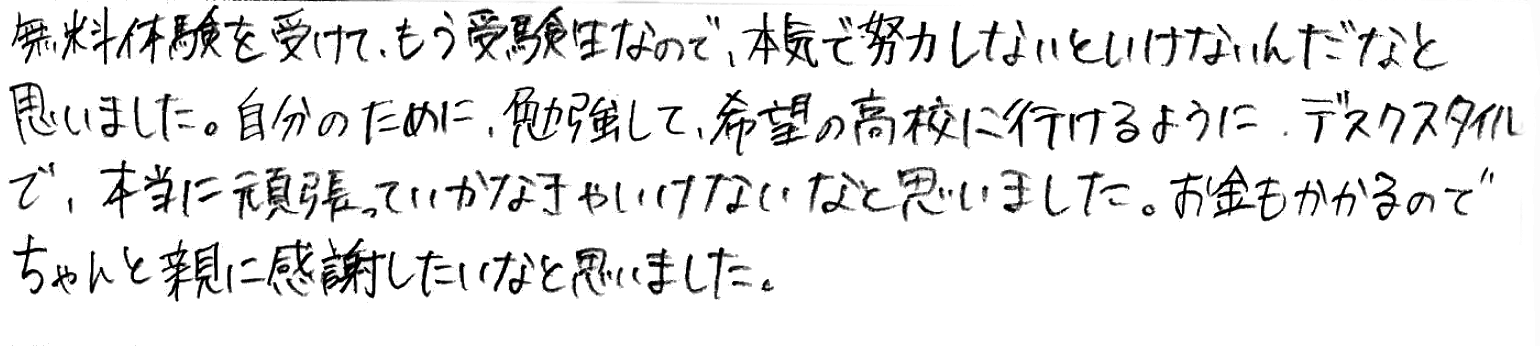 無料体験を受けて、もう受験生なので、本気で努力しないといけないんだなと
思いました。自分のために、勉強して、希望の高校に行けるように、デスクスタイル
で、本当に頑張っていかなきゃいけないなと思いました。お金もかかるので
ちゃんと親に感謝したいなと思いました。